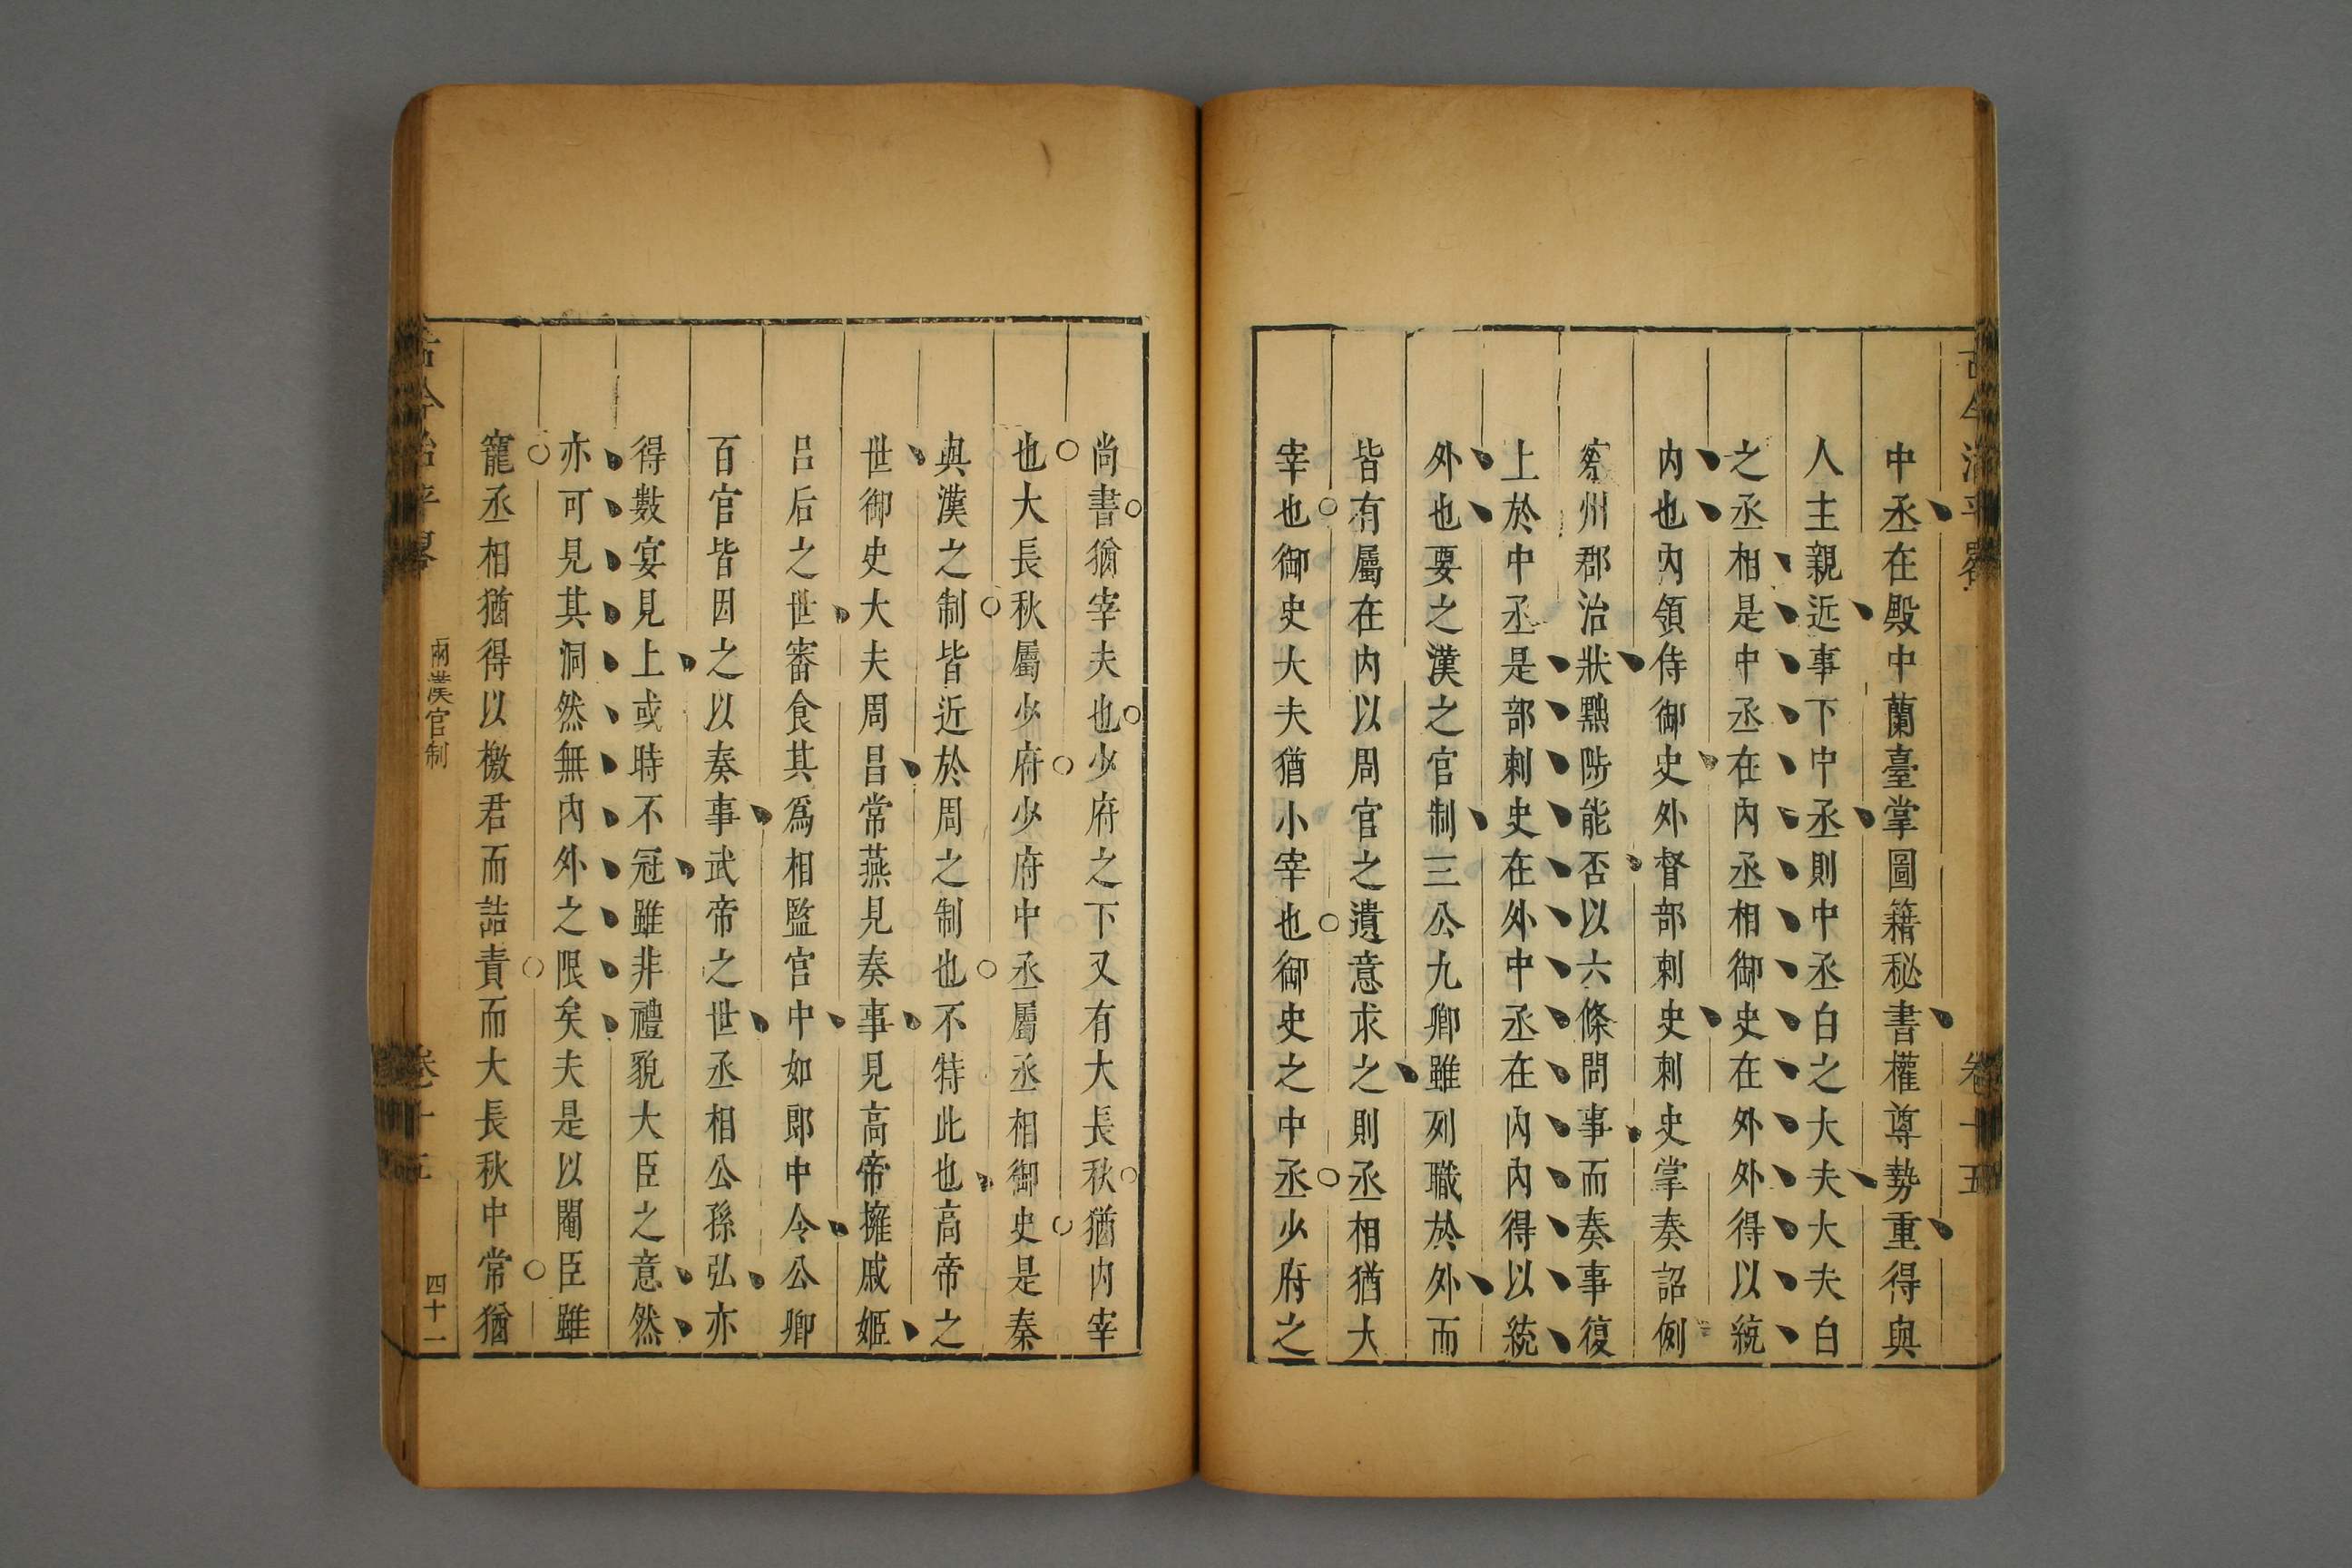 古今治平畧
卷十五
中丞在殿中蘭臺掌圖籍秘書權尊勢重得與
人主親近事下中丞則中丞白之大夫大夫白
之丞相是中丞在內丞相御史在外外得以統
內也內領侍御史外督部刺史刺史掌奏詔例
察州郡治狀黜陟能否以六條問事而奏事復
上於中丞是部刺史在外中丞在內內得以統
外也要之漢之官制三公九卿雖列職於外而
皆有屬在內以周官之遺意求之則丞相猶大
宰也御史大夫猶小宰也御史之中丞少府之
尚書猶宰夫也少府之下又有大長秋猶內宰
也大長秋屬少府少府中丞屬丞相御史是秦
與漢之制皆近於周之制也不特此也高帝之
世御史大夫周昌常燕見奏事見高帝擁戚姬
呂后之世審食其爲相監宮中如郎中令公卿
百官皆因之以奏事武帝之世丞相公孫弘亦
得數宴見上或時不冠雖非禮貌大臣之意然
亦可見其洞然無內外之限矣夫是以閹臣雖
寵丞相猶得以檄君而詰責而大長秋中常猶
古今治平畧
兩漢官制
卷十五
四十一